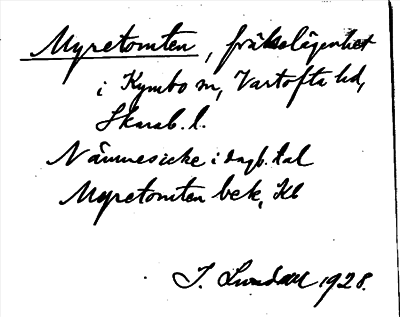 Myretomten, frälselägenhet
i Kymbo sn, Vartofta hd,
Skarab. l.
Nämnes icke i dagb. tal
Myretomten bek, Kb
J. Lundahl 1928.